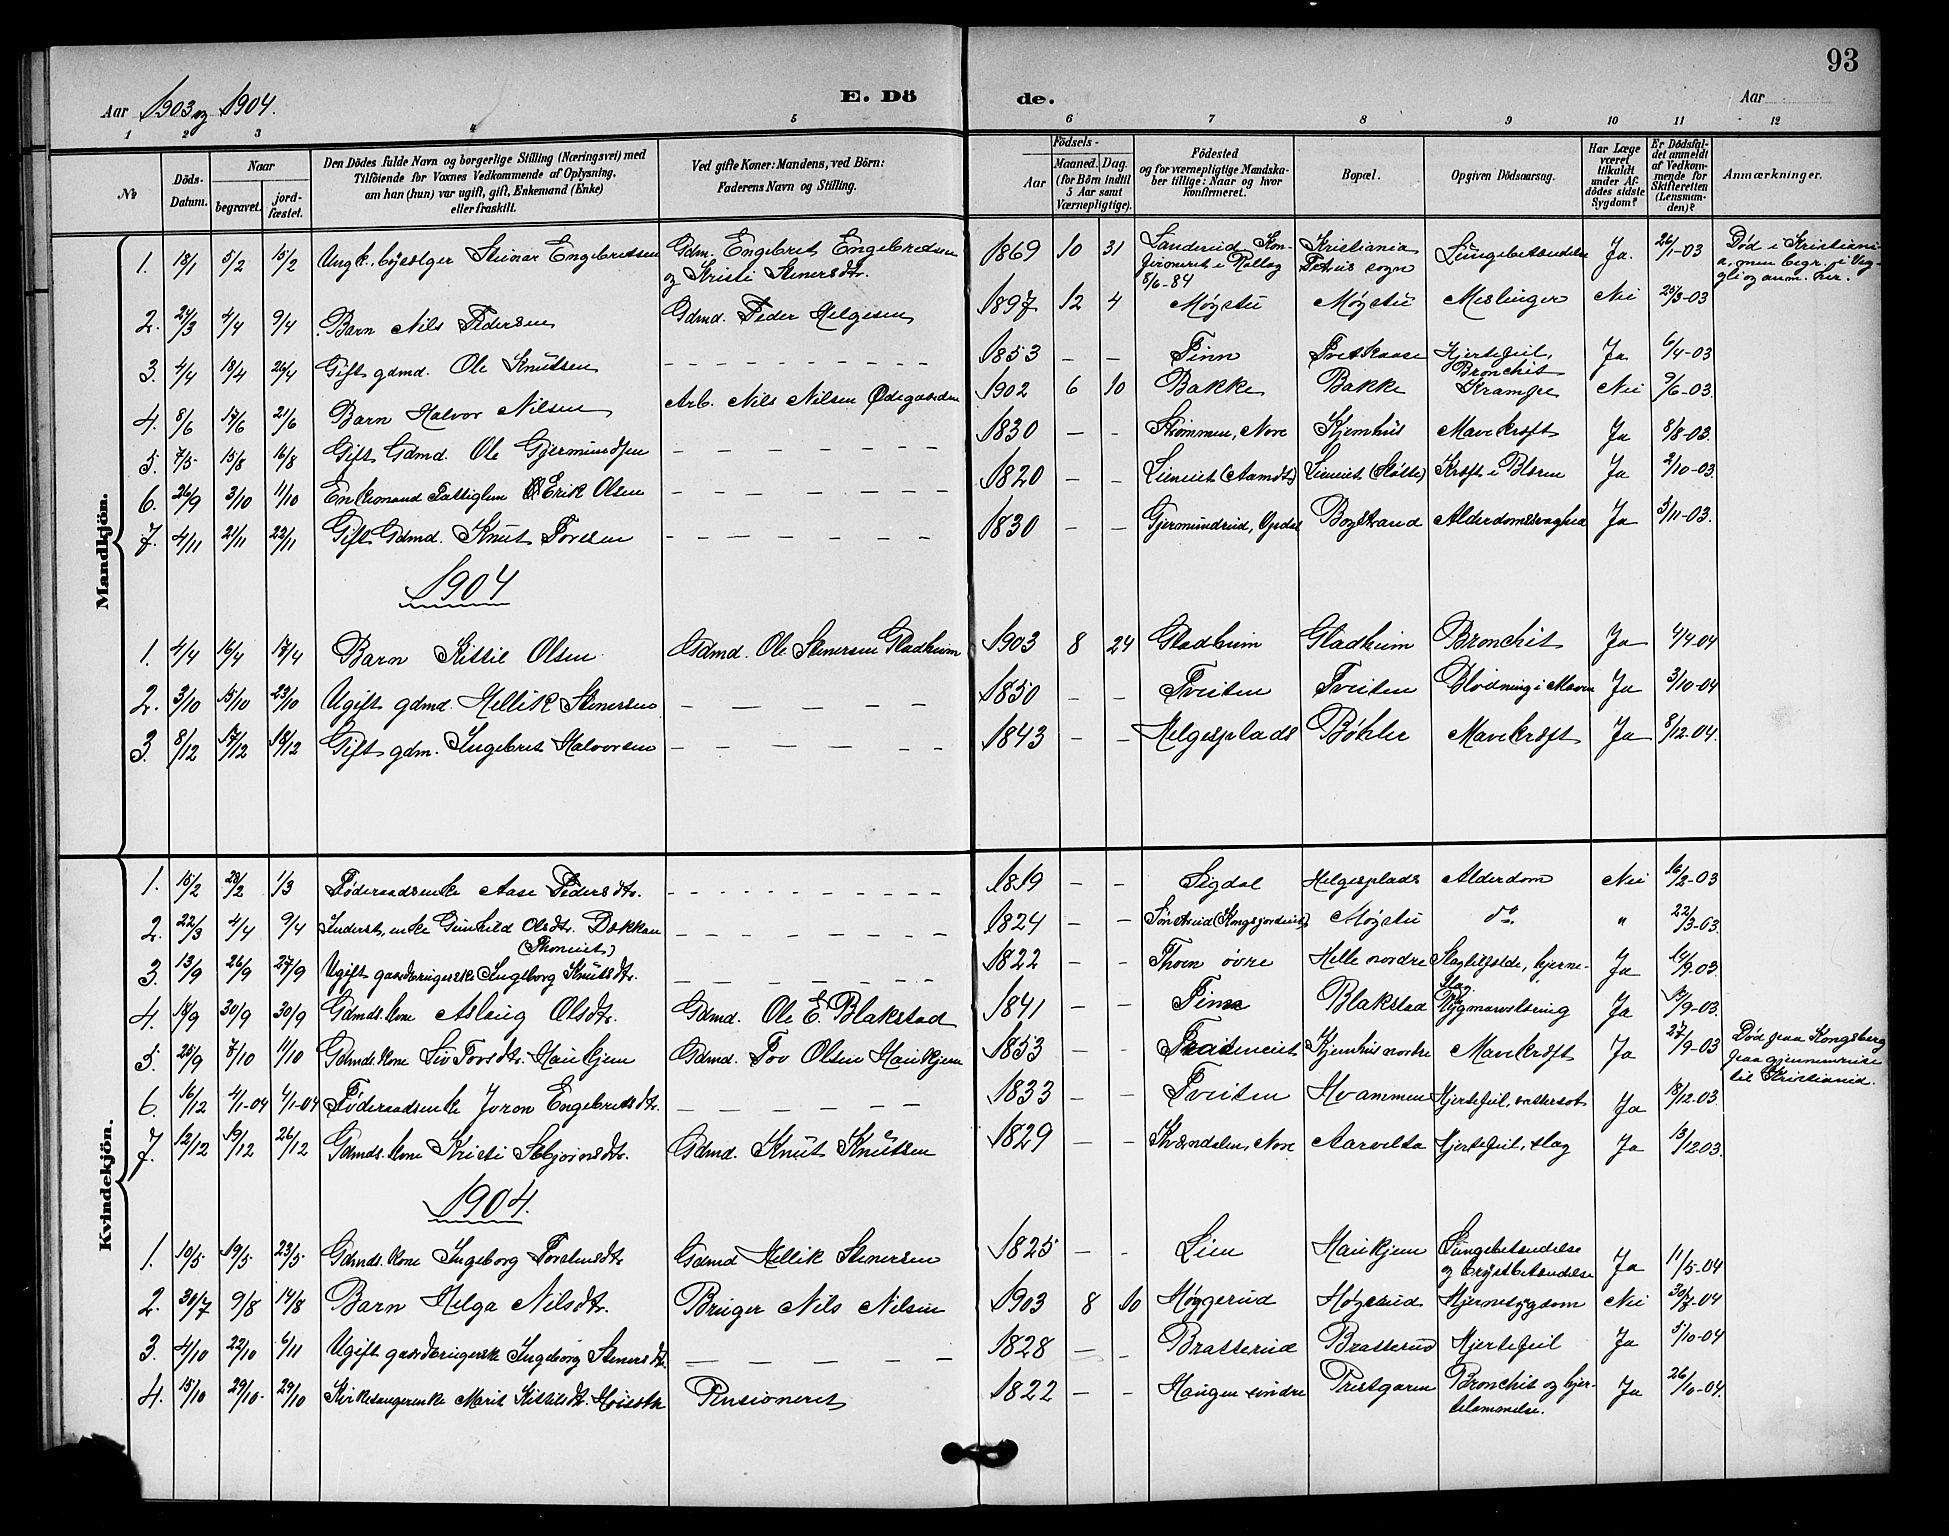 93
Aar 1903 og 1904.
E. Dö
de.
Aar
1 2 3 4 5 6 7 8 9 10 11 12
No
Döds-Datum.
Naar
begravet.
jord-fæstet.
Den Dödes fulde Navn og borgerlige Stilling (Næringsvei) med
Tilföiende for Voxnes Vedkommende af Oplysning,
om han (hun) var ugift, gift, Enkemand (Enke)
eller fraskilt.
Ved gifte Koner: Mandens, ved Börn:
Faderens Navn og Stilling.
Födsels-
Aar
Maaned. Dag.
(for Börn indtil
5 Aar samt
Værnepligtige).
Födested
og for værnepligtige Mandska-
ber tillige: Naar og hvor
konfirmeret.
Bopæl.
Opgiven Dödsaarsag.
Har Læge
været
tilkaldt
under Af-
dödes sidste
Sygdom?
Er Dödsfal-
det anmeldt
af Vedkom-
mende for
Skifteretten
(Lensman-
den)?
Anmærkninger.
Mandkjön.
1. 18/1 5/2 15/2 Ungk. byselger Steinar Engebretsen Gdm. Engebret Engebretsen 1869 10 31 Landerud Kon- Kristiania Lungebetændelse Ja. 26/1-03 Død i Kristiani-
og Kristi Stenersdtr. firmeret i Rollag Petrus sogn a, men begr. i Veg-
8/6-84 gli og anm. her.
2. 24/3 4/4 9/4 Barn Nils Pedersen Gdmd. Peder Helgesen 1897 12 4 Møystu Møystu Meslinger Nei 25/3-03
3. 4/4 18/4 26/4 Gift gdmd. Ole Knutsen - - - 1853 - - Finn Hjertefeil, Ja 6/4-03
Bronchit
4. 8/6 17/6 21/6 Barn Halvor Nilsen Arb. Nils Nilsen Ødegaarden 1902 6 10 Bakke Bakke Krampe Nei 9/6-03.
5. 7/5 15/8 16/8 Gift Gdmd. Ole Gjermundsen - - - 1830 - - Strømmen, Nore Kjemhus Mavekræft Ja 8/8-03.
6. 26/9 3/10 11/10 Enkemand Fattiglem Erik Olsen - - - 1820 - - Lieneiet (Aamdt) Lieneiet Kræft i Blæren Ja 2/10-03.
7. 4/11 21/11 22/11 Gift Gdmd. Knut Toresen - - - 1830 - - Gjermundrud, Opdal Bogstrand Alderdomssvaghed Ja 5/11-03.
1904
1. 4/4 16/4 17/4 Barn Kittil Olsen Gdmd. Ole Stenersen Gladheim 1903 8 24 Gladheim Gladheim Bronchit Ja 4/4-04
2. 3/10 15/10 23/10 Ugift gdmd. Hellik Stenersen - - - 1850 - - Tveiten Tveiten Blødning i Maven Ja 3/10-04
3. 8/12 17/12 18/12 Gift gdm. Ingebret Halvorsen - - - 1843 - - Helgesplads Bøhler Mavekræft Ja 8/12-04.
Kvindekjön.
1. 15/2 28/2 1/3 Føderaadsenke Aase Pedersdtr. - - - 1819 - - Sigdal Helgesplads Alderdom Nei 16/2-03
2. 22/3 4/4 9/4 Inderst, enke Gunhild Olsdtr. Dækkan - - - 1824 - - Møystu do. " 22/3-03.
(Thoneiet)
3. 13/9 26/9 27/9 Ugift gaardbrugerske Ingeborg Knutsdtr. - - - 1822 - - Thoen øvre Helle nordre Slagtilfælde, hjerne- Ja 14/9-03.
slag
4. 18/9 30/9 30/9 Gdmds. kone Aslaug Olsdtr. Gdmd. Ole E. Blakstad 1841 - - Finn Blakstad Rygmarvslidning Ja 19/9-03.
5. 25/9 7/10 11/10 Gdmds. kone Siv Torsdtr. Haukjem Gdmd. Tov Olsen Haukjem 1853 - - Kjemhus nordre Mavekræft Ja 27/9-03 Død paa Kongsberg
paa gjennemreise
til Kristiania.
6. 16/12 4/1-04 4/1-04 Føderaadsenke Joron Engebretsdtr. - - - 1833 - - Tveiten Hvammen Hjertefeil, vattersot Ja 18/12-03
7. 12/12 19/12 26/12 Gdmds. kone Kristi Asbjørnsdtr. Gdmd. Knut Knutsen 1829 - - Kvændalen, Nore Aarvelta Hjertefeil, slag Ja 13/12 03.
1904.
1. 10/5 19/5 23/5 Gdmds. kone Ingeborg Torstensdtr. Gdmd Hellik Stenersen 1825 - - Lien Haukjem Lungebetændelse Ja 11/5-04
og brystbetændelse
2. 30/7 9/8 14/8 Barn Helga Nilsdtr. Bruger Nils Nilsen 1903 8 10 Høygerud Høygerud Hjernesygdom Nei 30/7-04
3. 4/10 22/10 6/11 Ugift gaardbrugerske Ingeborg Stenersdtr. - - - 1828 - - Bratterud Bratterud Hjertefeil Ja 5/10-04
4. 15/10 29/10 29/10 Kirkesangerenke Marit Kittilsdtr. Høiseth Pensioneret 1822 - - Haugen søndre Prestgaren Bronchit og hjer- Ja 26/10-04.
telammelse.